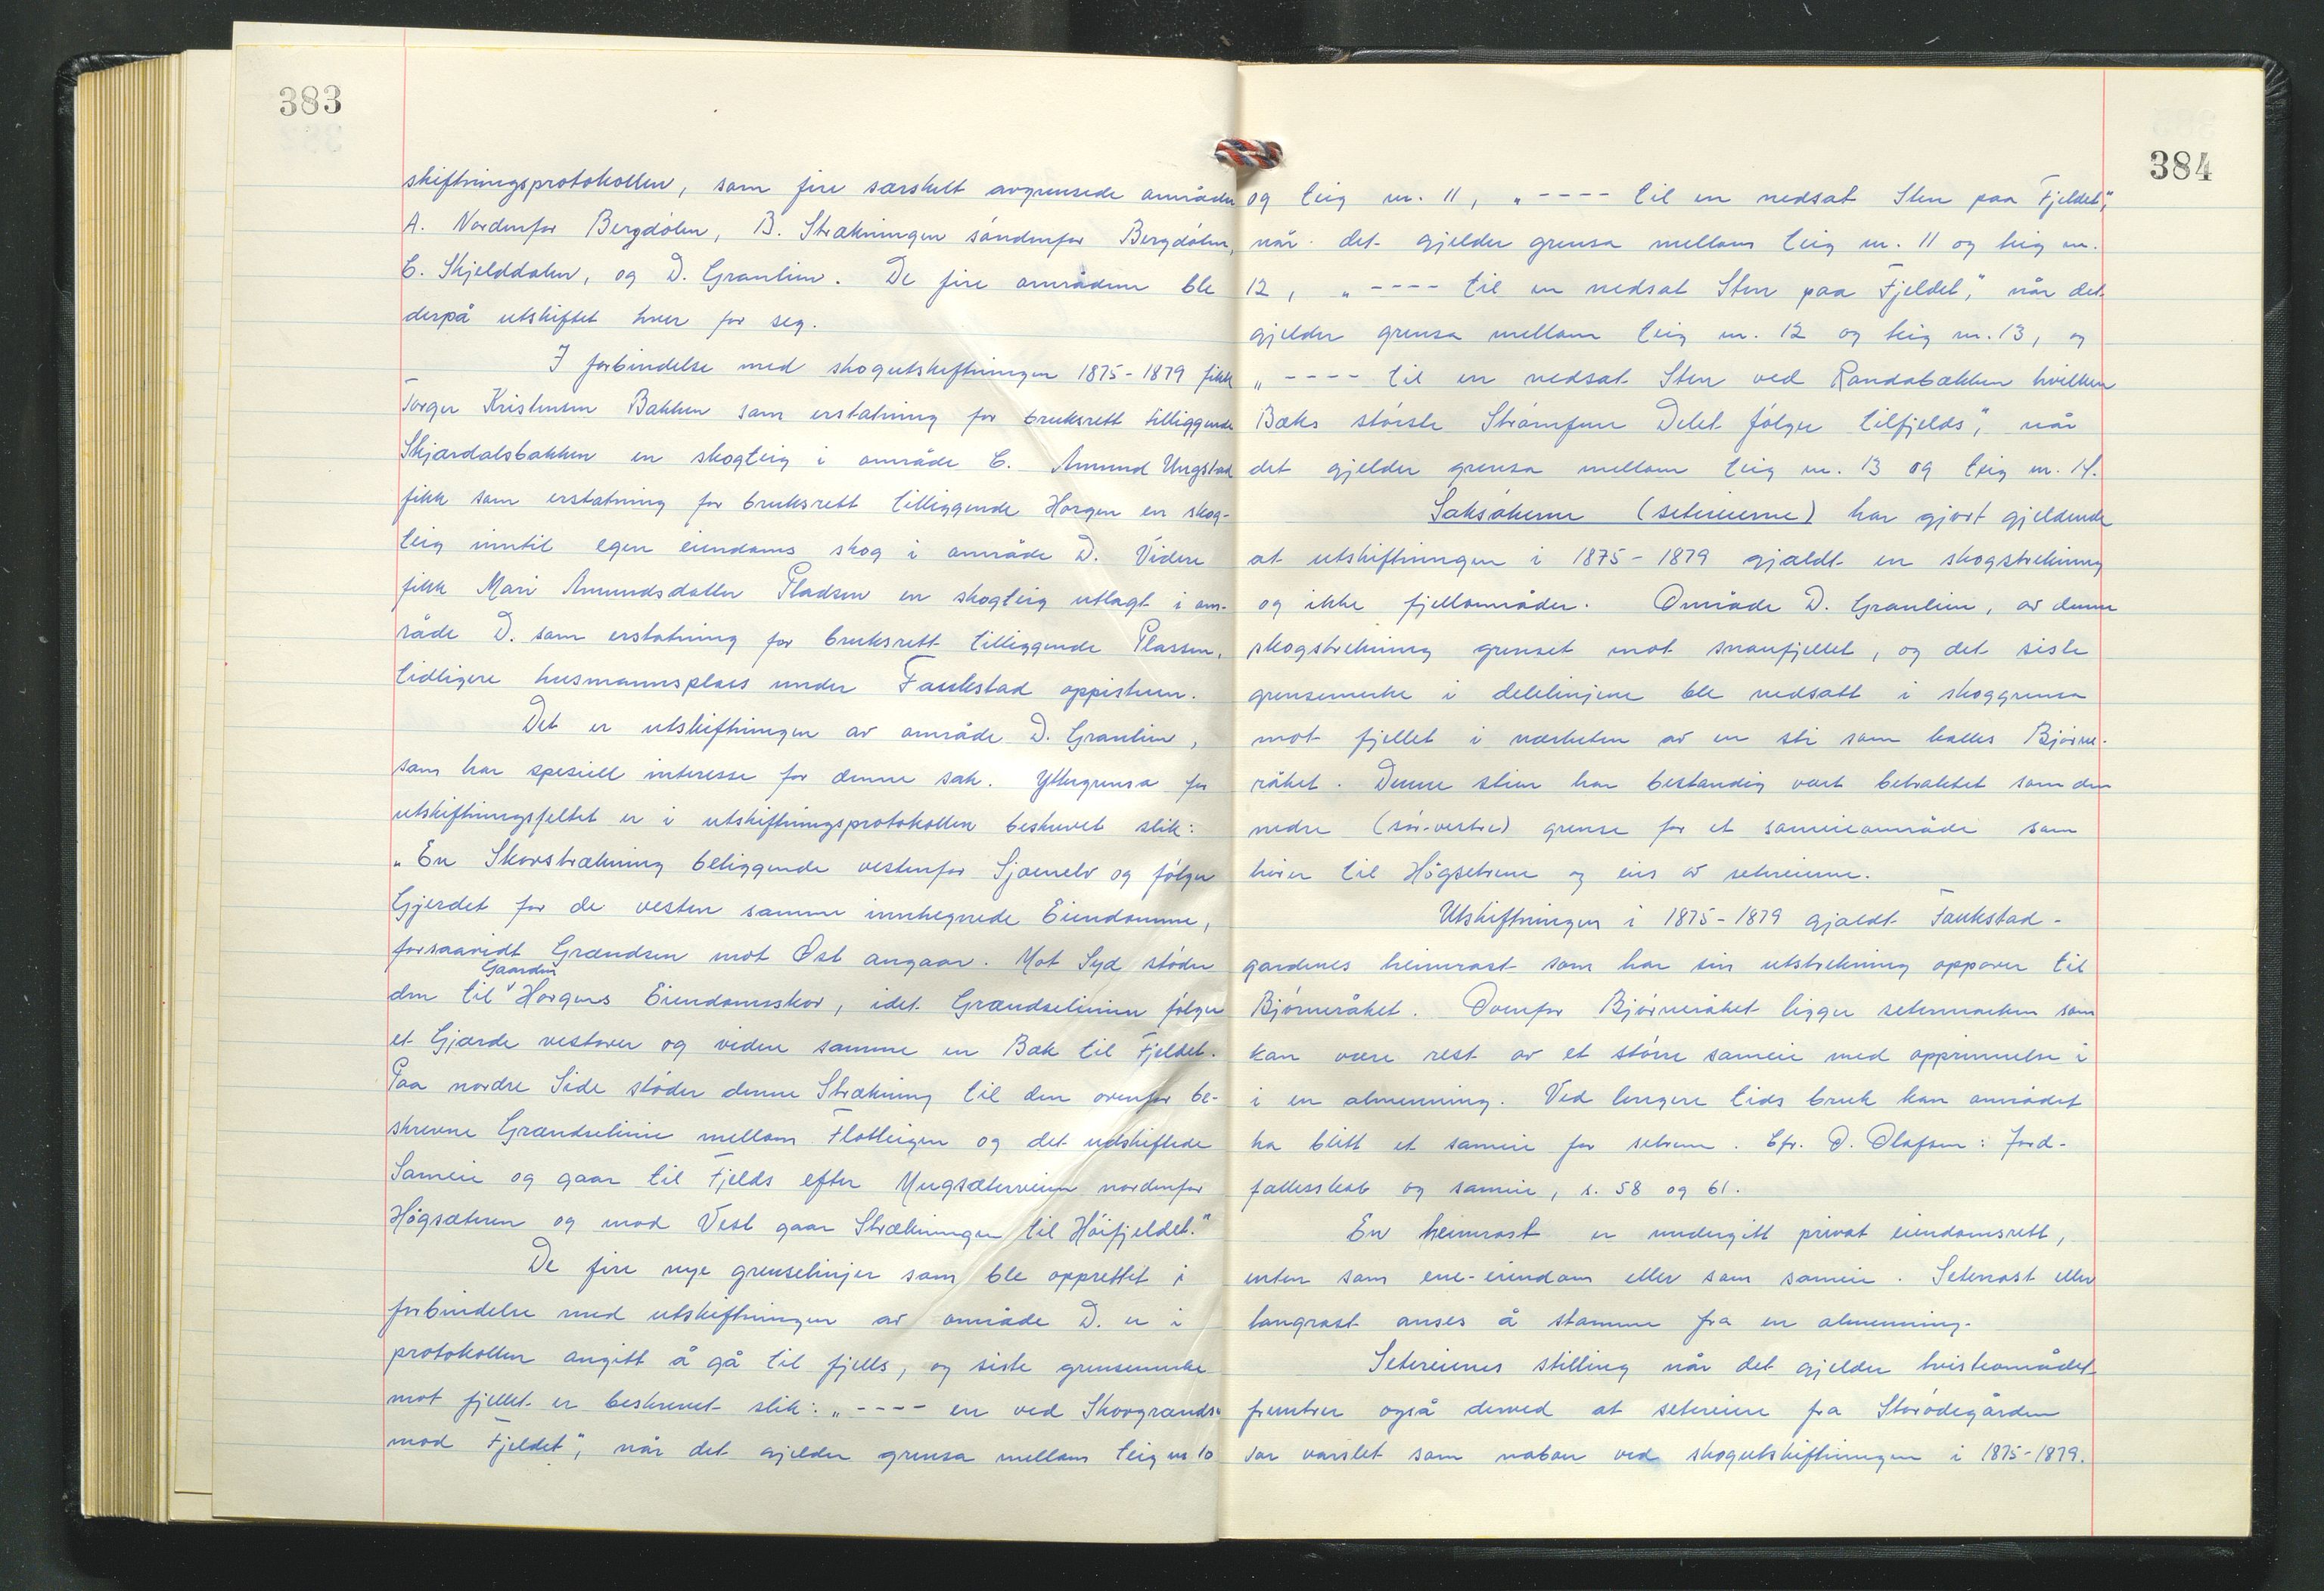 383
skiftningsprotokollen, som fire særskilt avgrensede områder
A. Nordenfor Bergdölen, B. Strækningen söndenfor Bergdölen,
C. Skjelddalen, og D. Granlien. De fire områdene ble
derpå utskiftet hver for seg.
I forbindelse med skogutskiftningen 1875-1879 fikk
Torger Kristensen Bakken som erstatning for bruksrett tilliggende
Skjærdalsbakken en skogteig i område C. Amund Ungstad
fikk som erstatning for bruksrett tilliggende Horgen en skog-
teig inntil egen eiendoms skog i område D. Videre
fikk Mari Amundsdatter Pladsen en skogteig utlagt i om-
råde D. som erstatning for bruksrett tilliggende Plassen,
tidligere husmannsplass under Faukstad oppistuen.
Det er utskiftningen av område D. Granlien,
som har spesiell interesse for denne sak. Yttergrensa for
utskiftningsfeltet er i utskiftningsprotokollen beskrevet slik:
„En Skovstrækning beliggende vestenfor Sjoenelv og följer
Gjerdet for de vesten samme innhegnede Eiendomme,
forsaavidt Grændsen mot Öst angaar. Mot Syd stöder
den til Gaarden Horgens Eiendomsskov, idet Grændselinien följer
et Gjærde vestover og videre samme en Bæk til Fjeldet.
Paa nordre Side stöder denne Strækning til den ovenfor be-
skrevne Grændselinie mellom Flotteigen og det udskiftede
Sameie og gaar til Fjelds efter Mugsæterveien nordenfor
Högsæteren og mod Vest gaar Strækningen til Höifjeldet."
De fire nye grenselinjer som ble opprettet i
forbindelse med utskiftningen av område D. er i
protokollen angitt å gå til fjells, og siste grensemerke
mot fjellet er beskrevet slik: „---- en ved Skovgrændsen
mod Fjeldet", når det gjelder grensa mellom teig nr 10
384
og teig nr. 11, „---- til en nedsat Sten paa Fjeldet",
når det gjelder grensa mellom teig nr. 11 og teig nr.
12, „---- til en nedsat Sten paa Fjeldet", når det
gjelder grensa mellom teig nr. 12 og teig nr. 13, og
„---- til en nedsat Sten ved Randabækken hvilken
Bæks störste Strömfure Delet fölger tilfjelds", når
det gjelder grensa mellom teig nr. 13 og teig nr. 14.
Saksökerne (setereierne) har gjort gjeldende
at utskiftningen i 1875-1879 gjaldt en skogstrekning
og ikke fjellområder. Område D. Granlien, av denne
skogstrekning grenset mot snaufjellet, og det siste
grensemerke i delelinjene ble nedsatt i skoggrensa
mot fjellet i nærheten av en sti som kalles Björne-
råket. Denne stien har bestandig vært betraktet som den
nedre (sör-vestre) grense for et sameieområde som
hörer til Högsetrene og eies av setereierne.
Utskiftningen i 1875-1879 gjaldt Faukstad-
gardenes heimrast som har sin utstrekning oppover til
Björneråket. Ovenfor Björneråket ligger setermarken som
kan være rest av et större sameie med opprinnelse i
i en almenning. Ved lengere tids bruk kan området
ha blitt et sameie for setrene. Cfr. O. Olafsen: Jord-
fællesskab og sameie, s. 58 og 61.
En heimrast er undergitt privat eiendomsrett,
enten som ene-eiendom eller som sameie. Seterrast eller
langrast anses å stamme fra en almenning.
Setereienes stilling når det gjelder tvisteområdet
fremtrer også derved at setereiere fra Storödegården
var varslet som naboer ved skogutskiftningen i 1875-1879.